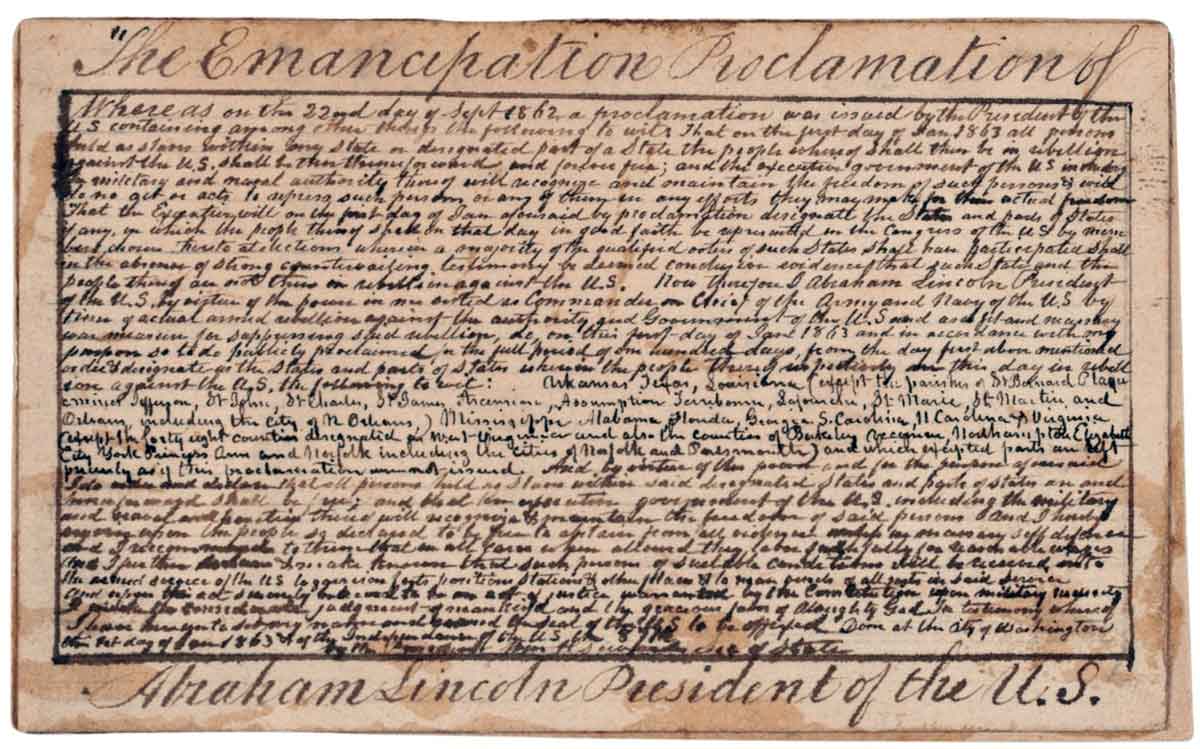 "The Emancipation Proclamation of
Whereas on the 22nd day of Sept 1862, a proclamation was issued by the President of the
U S containing among other things the following to wit: That on the first day of Jan 1863 all persons
held as slaves within any State or designated part of a State the people whereof shall then be in rebellion
against the U.S. shall be then thenceforward and forever free; and the executive government of the US including
military and naval authority thereof will recognize and maintain the freedom of such persons & will
do no act or acts to repress such persons or any of them in any efforts they may make for their actual freedom
That the Executive will on the first day of Jan aforesaid by proclamation designate the States and parts of States
if any, in which the people thereof shall on that day in good faith be represented in the Congress of the US by
chosen thereto at elections wherein a majority of the qualified voters of such States shall have participated shall
in the absence of strong countervailing testimony be deemed conclusive evidence that such State and the
people thereof are not then in rebellion against the U.S. Now therefore I Abraham Lincoln President
of the U.S. by virtue of the power in me vested as Commander in Chief of the Army and Navy of the U S by
time of actual armed rebellion against the authority and Government of the U.S and as a fit and necessary
war measure for suppressing said rebellion, do, on this first day of Jan 1863 and in accordance with my
purpose so to do publicly proclaimed for the full period of one hundred days, from the day first above mentioned
order & designate as the States and parts of States wherein the people thereof respectively on this day in rebell
ion against the U.S. the following to wit: Arkansas Texas, Louisiana (except the parishes of St Bernard Plaque
mines Jefferson, St John, St Charles, St James Ascension, Assumption Terribonne, Lafourche, St Marie, St Martin, and
Orleans, including the City of N Orleans,) Mississippi Alabama, Florida, Georgia S. Carolina, N Carolina & Virginia
(except the forty eight counties designated as West Virginia and also the counties of Berkeley Accomac, Northampton Elizabeth
City York Princess Ann and Norfolk including the cities of Norfolk and Portsmouth) and which excepted parts are left
precisely as if this proclamation were not issued. And by virtue of the power and for the purpose aforesaid
I do order and declare that all persons held as slaves within said designated States and parts of States are and
henceforward shall be free; and that the executive government of the U.S. including the military
and naval authorities thereof will recognize & maintain the freedom of said persons And I hereby
enjoin upon the people so declared to be free to abstain from all violence unless in necessary self defence
and I recommend to them that in all cases when allowed they labor faithfully for reasonable wages
And I further make known that such persons of suitable condition will be received into
the armed service of the US to garrison forts positions stations & other places & to man vessels of all sorts in said service
And upon this act sincerely believed to be an act of justice warranted by the Constitution upon military necessity
I invoke the considerate judgement of mankind and the gracious favor of Almighty God In testimony whereof
I have hereunto set my name and caused the seal of the U S to be affixed Done at the City of Washington
the 1st day of Jan 1863 & of the Independence of the U S the 87th
by the President Wm H Seward Sec of State
Abraham Lincoln President of the U.S.